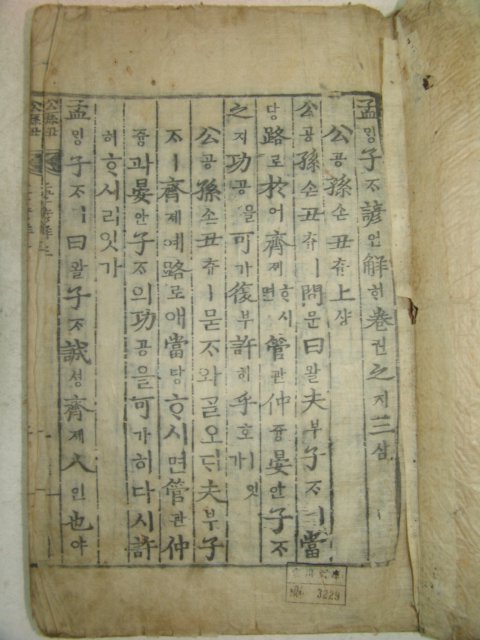 孟밍子ᄌᆞ諺언解ᄒᆡ卷권之지三삼
公공孫손丑츄上샹
公공孫손丑츄ㅣ問문曰왈夫부子ᄌᆞㅣ當
당路로於어齊졔ᄒᆞ시면管관仲즁晏안子ᄌᆞ
之지功공을可가復부許허乎호ㅣ잇가
公공孫손丑츄ㅣ묻ᄌᆞ와ᄀᆞᆯ오ᄃᆡ夫부子
ᄌᆞㅣ齊졔예路로애當당ᄒᆞ시면管관仲
즁과晏안子ᄌᆞ의功공을可가히다시許
허ᄒᆞ시리잇가
孟밍子ᄌᆞㅣ曰왈子ᄌᆞ誠셩齊졔人인也야
公孫丑
3229